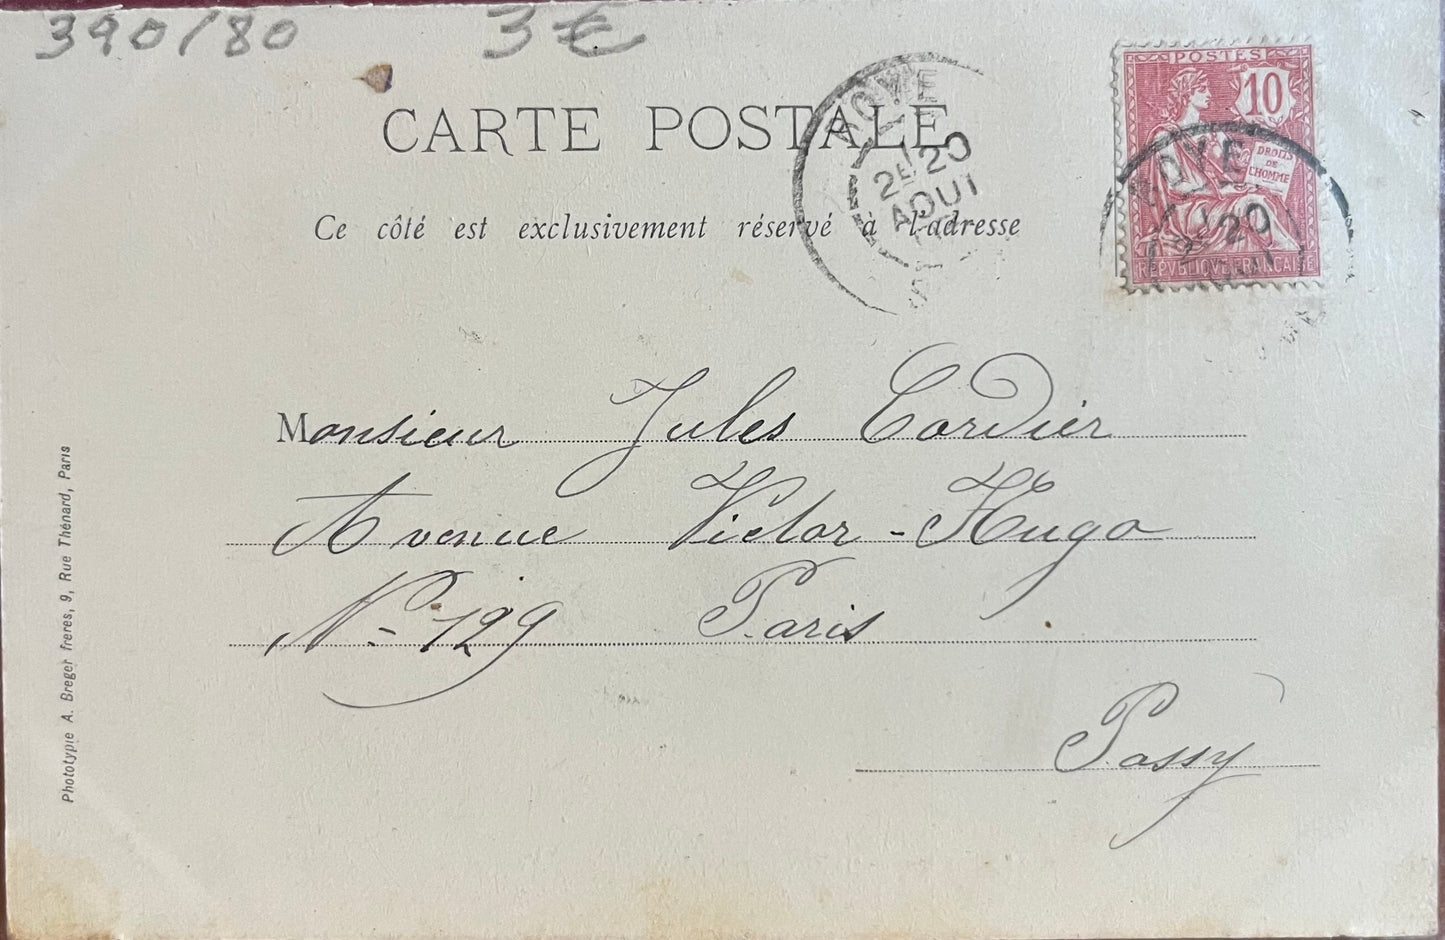 390/80 3 €
CARTE POSTALE
Ce côté est exclusivement réservé à l'adresse
ROYE
2E 20
AOUT
POSTES
10
DROITS
DE
L'HOMME
REPVBLIQVE FRANCAISE
ROYE
2E 20
Monsieur Jules Cordier
Avenue Victor-Hugo
No 129 Paris
Passy
Phototypie A. Breger freres, 9, Rue Thénard, Paris